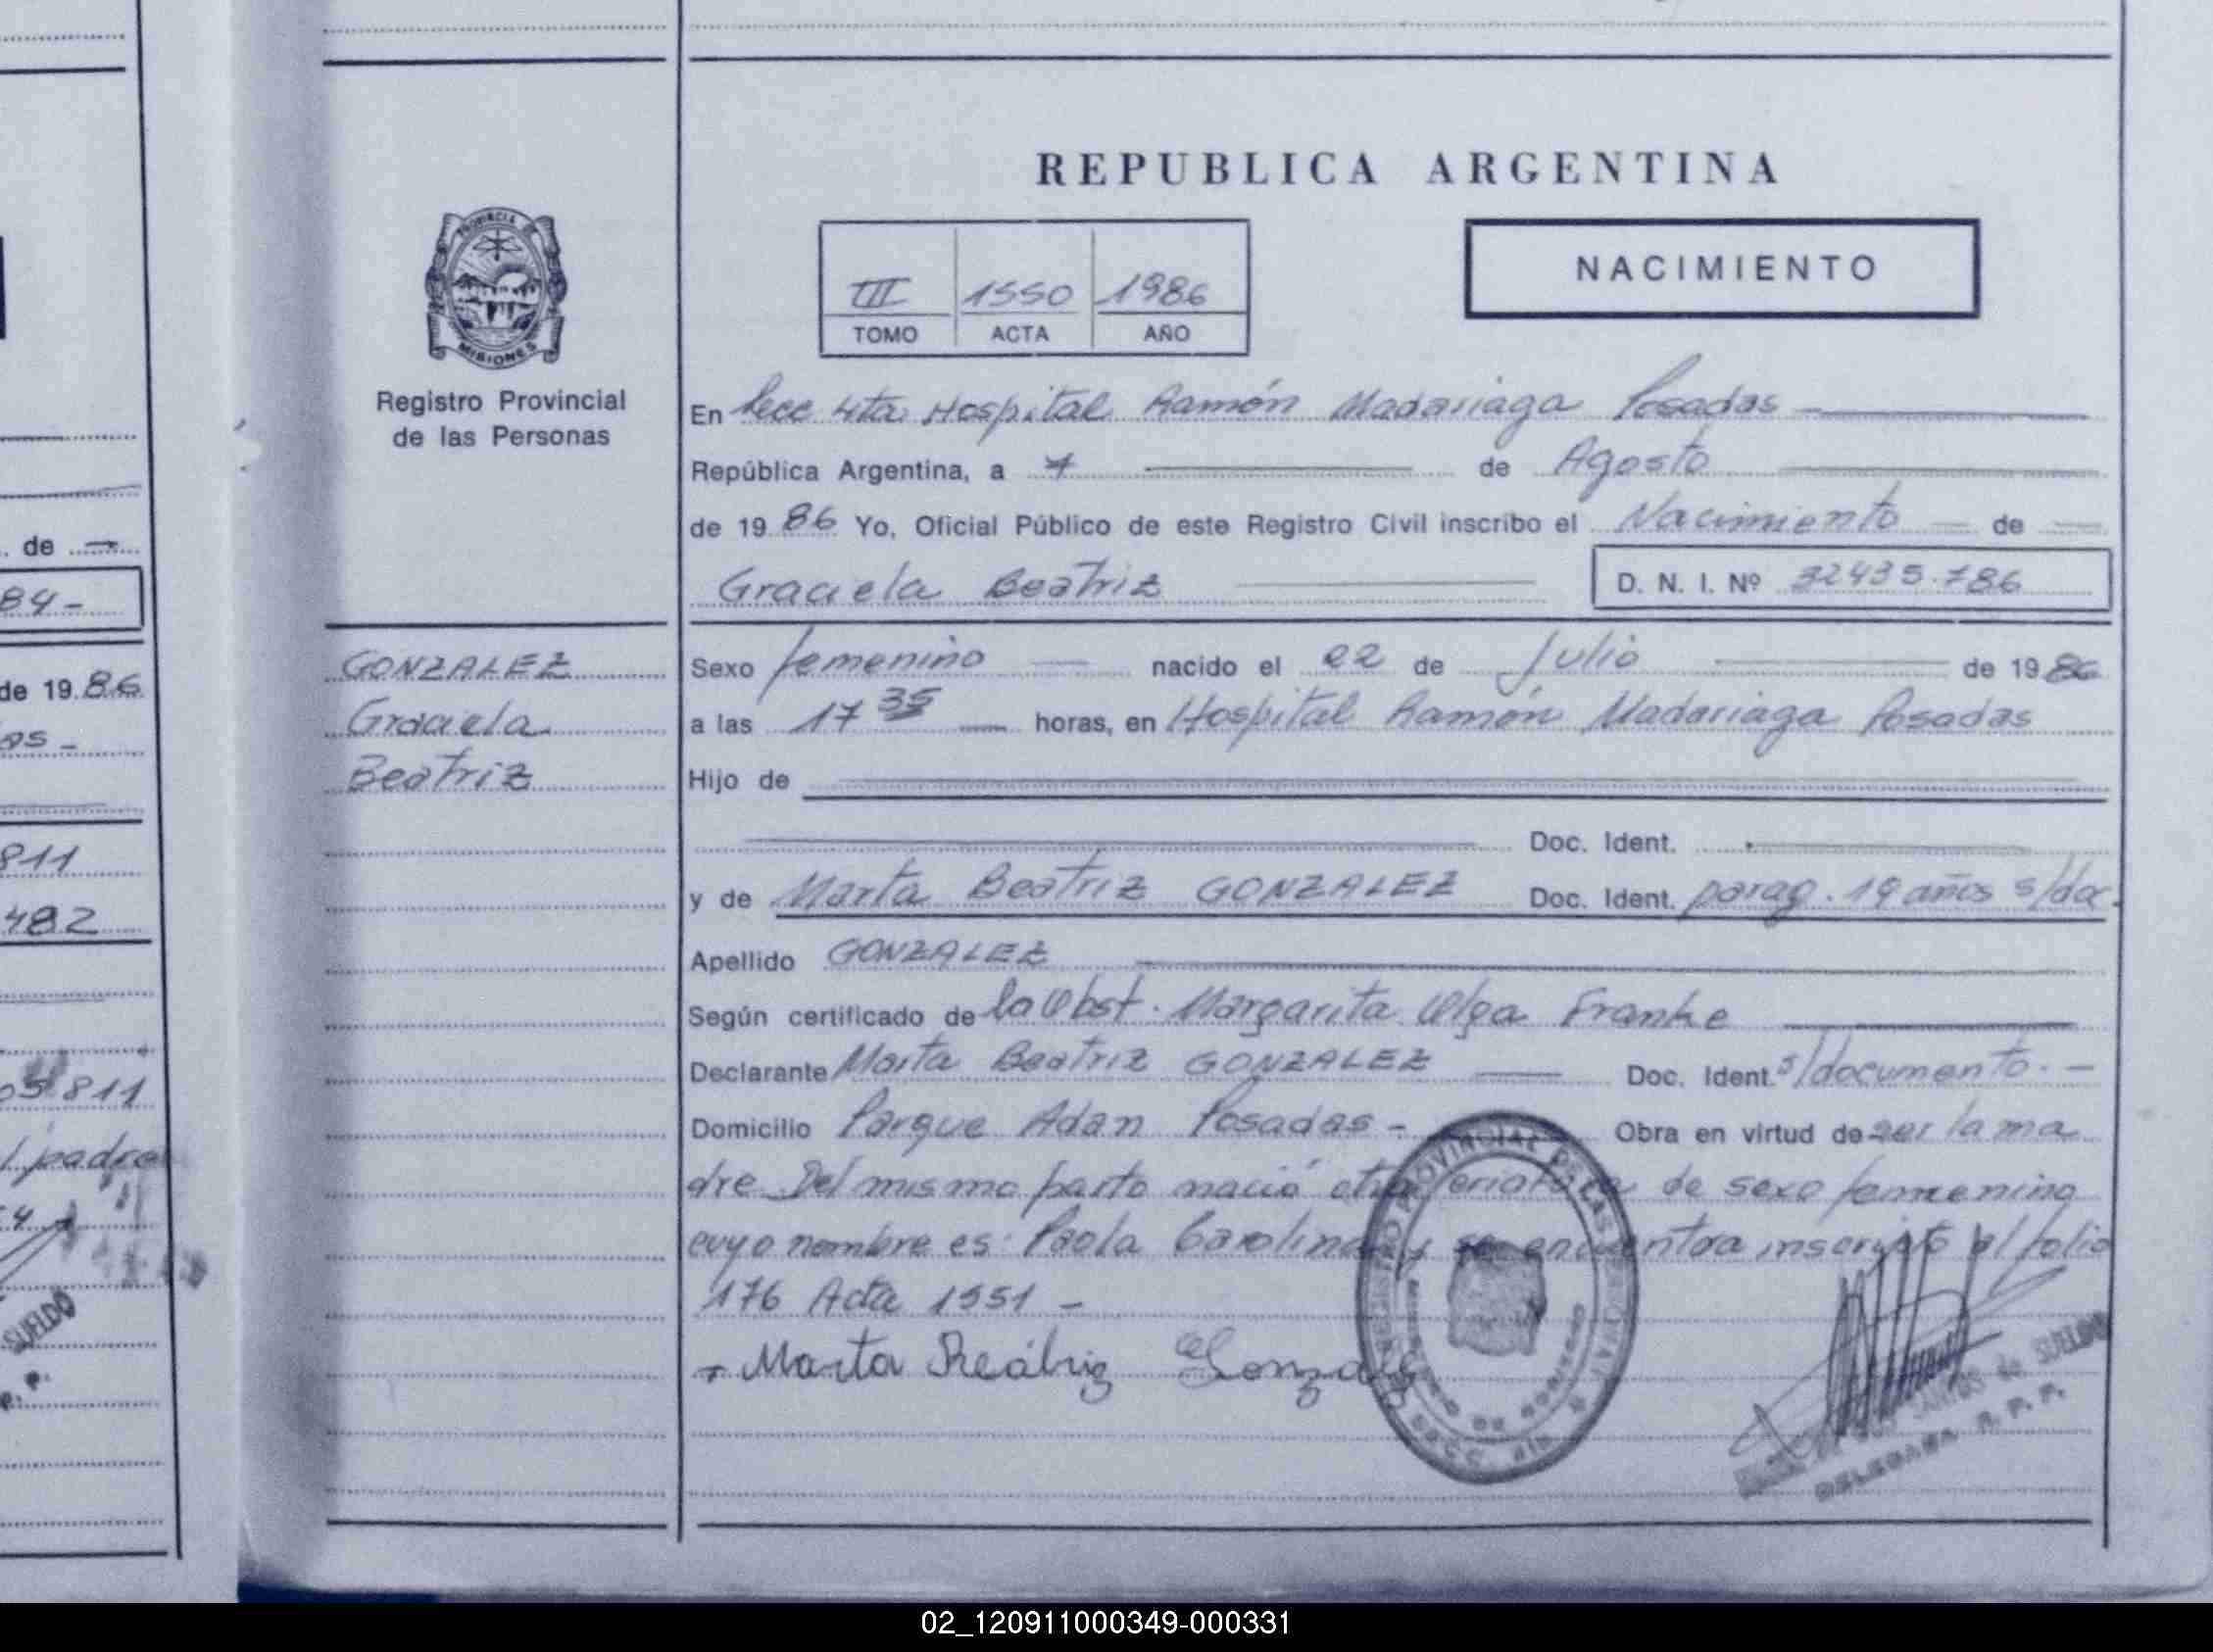 REPUBLICA ARGENTINA
PROVINCIA DE
MISIONES
Registro Provincial
de las Personas
III 1550 1986
TOMO ACTA AÑO
NACIMIENTO
En Secc 4ta Hospital Ramón Madariaga Posadas
República Argentina, a 7 de Agosto
de 1986 Yo, Oficial Público de este Registro Civil inscribo el Nacimiento de
Graciela Beatriz D. N. I. Nº 32435.786
GONZALEZ
Graciela
Beatriz
Sexo femenino nacido el 22 de Julio de 1986
a las 17 35 horas, en Hospital Ramón Madariaga Posadas
Hijo de
Doc. Ident.
y de Marta Beatriz GONZALEZ Doc. Ident. parag. 19 años s/doc.
Apellido GONZALEZ
Según certificado de la Obst. Margarita Olga Franke
Declarante Marta Beatriz GONZALEZ Doc. Ident. s/documento. -
Domicilio Parque Adan Posadas - Obra en virtud de ser la ma
dre Del mismo parto nació otra de sexo femenino
cuyo nombre es: Paola Carolina y se encuentra inscripto al folio
176 Acta 1551 -
Marta Beátriz Gonzalez
de SUELDO
DELEGADA R. P. P.
de
84-
de 1986
as -
811
482
05.811
padre
SUELDO
P. P.
02_120911000349-000331